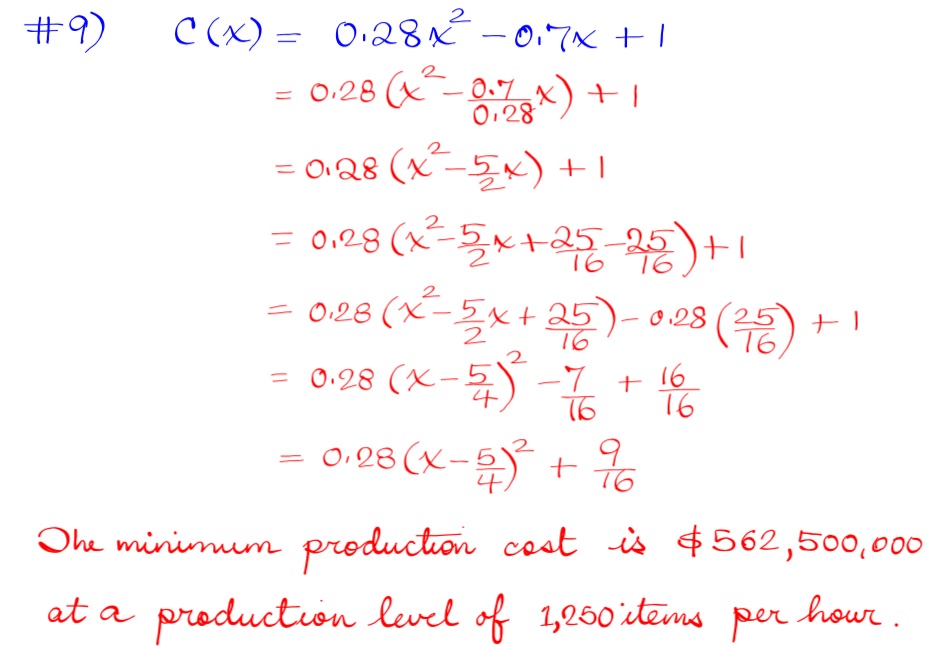 #9) C(x) = 0.28x² - 0.7x + 1
= 0.28 (x² - 0.7/0.28 x) + 1
= 0.28 (x² - 5/2 x) + 1
= 0.28 (x² - 5/2 x + 25/16 - 25/16) + 1
= 0.28 (x² - 5/2 x + 25/16) - 0.28 (25/16) + 1
= 0.28 (x - 5/4)² - 7/16 + 16/16
= 0.28 (x - 5/4)² + 9/16
The minimum production cost is $562,500,000
at a production level of 1,250 items per hour.